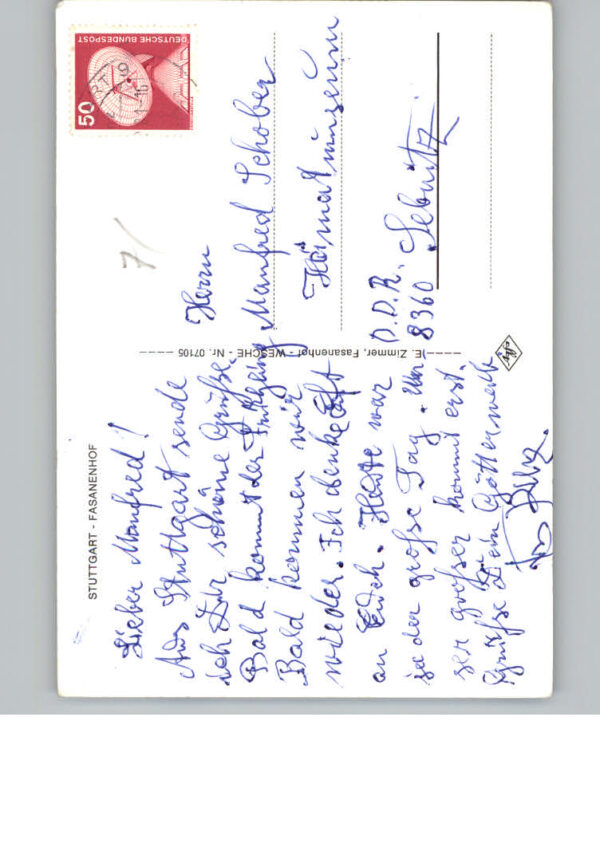 STUTTGART - FASANENHOF
Lieber Manfred!
Aus Stuttgart sende
ich Dir schöne Grüße.
Bald kommt der Frühling
Bald kommen wir
wieder. Ich denke oft
an Euch. Heute war
ja der große Tag. Un
ser großer kommt erst.
Grüße Dein
E. Zimmer, Fasanenhof - WESCHE - Nr. 07105
50
DEUTSCHE BUNDESPOST
Herrn
Manfred Schober
Heimatmuseum
D.D.R.
8360 Sebnitz
7/